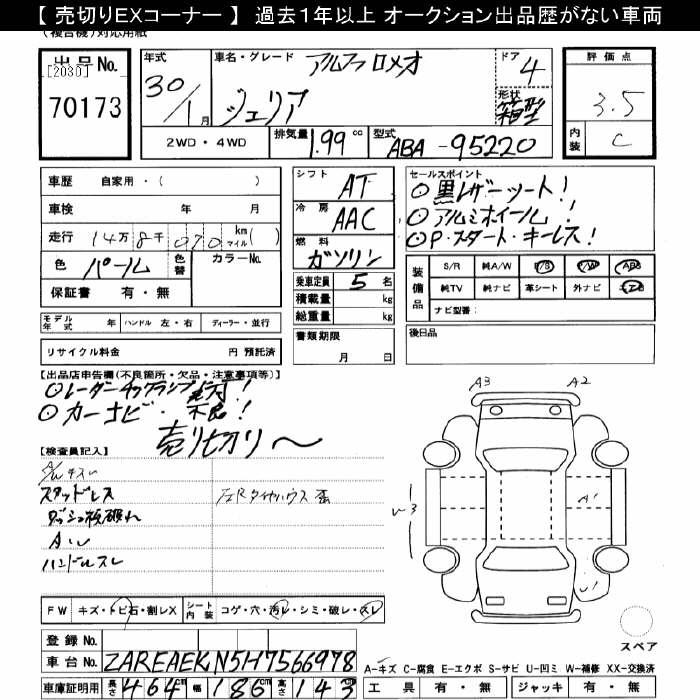 【 売切りEXコーナー 】 過去１年以上 オークション出品歴がない車両
(複合機)対応用紙
出品No.
[2030]
70173
年式
30/1月
車名・グレード
アルファロメオ
ジュリア
ドア
4
形状
箱型
評価点
3.5
内装
C
2WD ・ 4WD
排気量
1.99 cc
型式
ABA -95220
車歴 自家用・( )
車検 年 月
走行 14万 8千 070 km マイル( )
色 パール
色替
カラーNo.
保証書 有・無
シフト
AT
冷房
AAC
燃料
ガソリン
乗車定員 5 名
積載量 kg
総重量 kg
セールスポイント
◎ 黒レザーシート!
◎ アルミホイール!
◎ P・スタート・キーレス!
装備品
S/R 純A/W P/S P/W ABS
純TV 純ナビ 革シート 外ナビ エアB
ナビ型番:
モデル年式 年 ハンドル 左・右 ディーラー・並行
リサイクル料金 円 預託済
書類期限
月 日
後日品
【出品店申告欄(不良箇所・欠品・注意事項等)】
◎レーダーチックランプ点灯!
◎カーナビ・不良!
売り切り〜
【検査員記入】
A/W キズ
スタッドレス
ダッシュ板破れ
Aソレ
ハンドルスレ
左Rタイヤハウス
FW キズ・トビ石・割レX
シート内装 コゲ・穴・汚レ・シミ・破レ・スレ
登録No.
車台No. ZAREAEKN5H7566978
車庫証明用 長さ 464 cm 幅 186 cm 高さ 143 cm
A3
A2
A1
U3
U1
スペア
A-キズ C-腐食 E-エクボ S-サビ U-凹ミ W-補修 XX-交換済
工具 有・無 ジャッキ 有・無